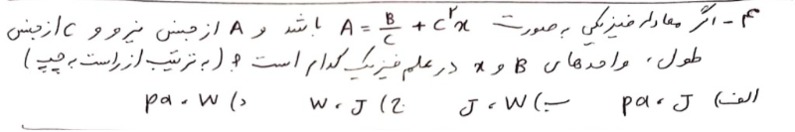 ۴ - اگر معادله فیزیکی به صورت A = B/C + C²x باشد و A از جنس نیرو و C از جنس
طول، واحدهای B و x در علم فیزیک کدام است ؟ (به ترتیب از راست به چپ)
الف) J ، pa ب) W ، J ج) J ، W د) W ، pa